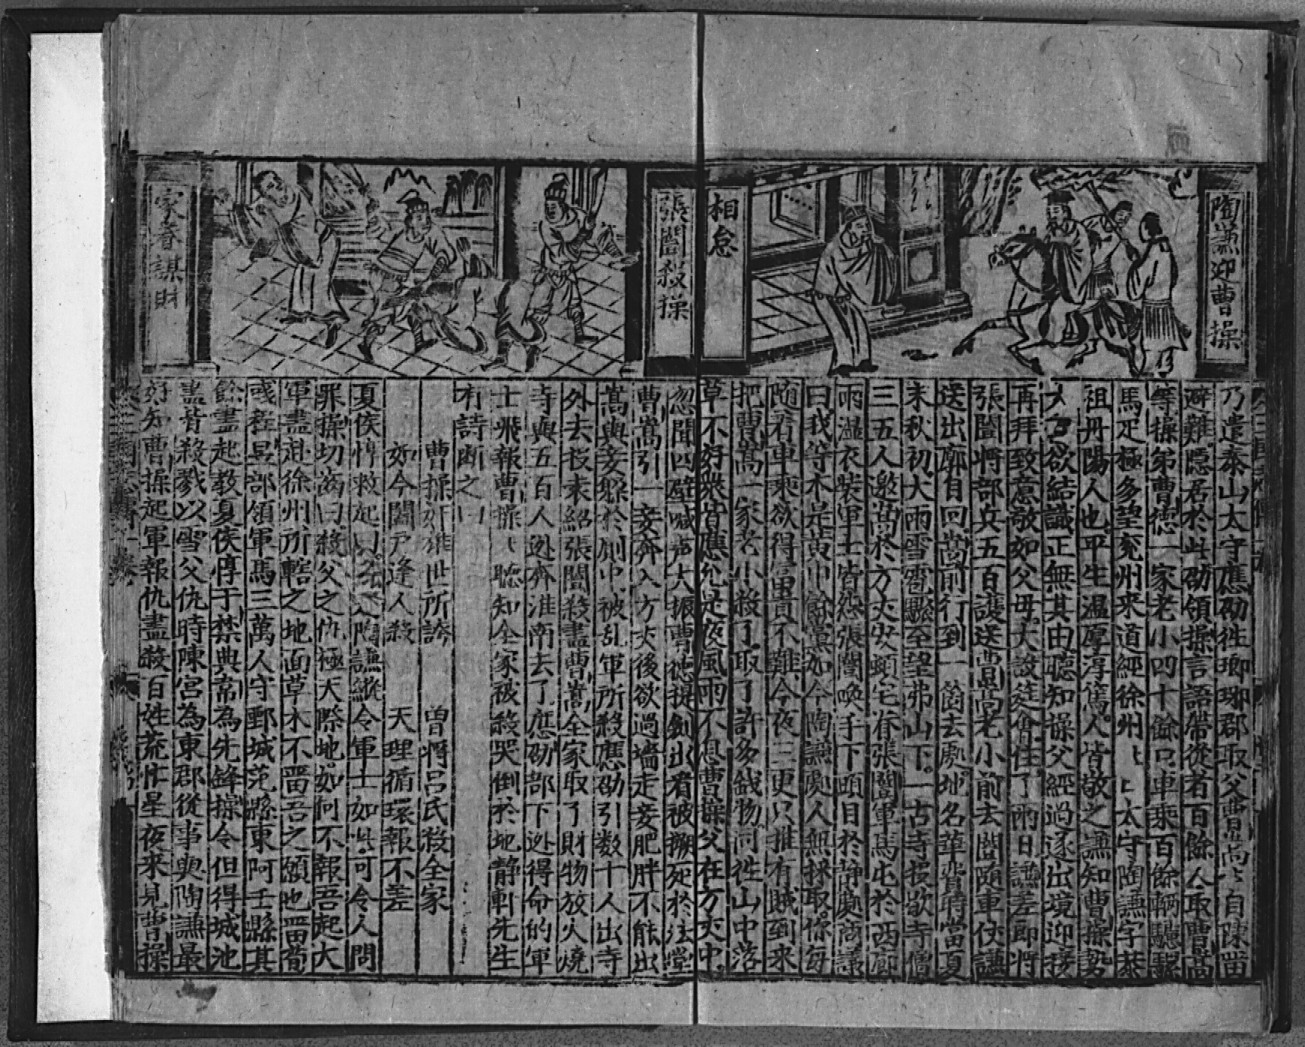 陶謙迎曹操
相怠
乃遣泰山太守應劭徃瑯琊郡取父曹嵩〻自陳畱
避難隱居於此劭領操言語帶從者百餘人取曹嵩
等操弟曹德一家老小四十餘口車乘百餘輛騾驢
馬疋極多望兖州來道經徐州〻〻太守陶謙字恭
祖丹陽人也平生溫厚淳篤人皆敬之謙知曹操勢
大 欲結識正無其由聽知操父經過遂出境迎接
再拜致意敬如父毋大設筵會住了兩日謙差即將
張闓將部兵五百護送曹嵩老小前去闓隨車仗謙
送出廓自回嵩前行到一箇去處地名華費時當夏
末秋初大雨雪雹驟至望弗山下一古寺投歇寺僧
三五人邀嵩於方丈安頓宅眷張闓軍馬屯於西廊
雨濕衣裝軍士皆怨張闓喚手下頭目於静處商議
曰我等本是黄巾餘黨如今陶謙處人無採取你每
随着車乘欲得富貴不難今夜三更只推有賊到來
把曹嵩一家老小殺了取了許多錢物同徃山中落
草不好衆皆應允是夜風雨不息曹操父在方丈中
張闓殺操
家眷謀財
忽聞四壁喊声大振曹德提劍出看被搠死於法堂
曹嵩引一妾奔入方丈後欲過墻走妾肥胖不能出
嵩與妾躲於厠中被乱軍所殺應劭引数十人出寺
外去投袁紹張闓殺盡曹嵩全家取了財物放火燒
寺與五百人迯奔淮南去了應劭部下迯得命的軍
士飛報曹操〻聽知全家被殺哭倒於地静軒先生
有詩断之曰
曹操奸雄世所誇 曽將呂氏殺全家
如今闔户逢人殺 天理循環報不差
夏侯惇救起曰 陶謙縱令軍士如此可令人問
罪操切齒曰殺父之仇極天際地如何不報吾起大
軍盡赴徐州所轄之地面草木不畱吾之願也畱荀
彧程昱部領軍馬三萬人守鄄城范縣東阿壬縣其
餘盡起教夏侯惇于禁典韋為先鋒操令但得城池
盡皆殺戮以雪父仇時陳宮為東郡從事與陶謙最
好知曹操起軍報仇盡殺百姓荒忙星夜來見曹操